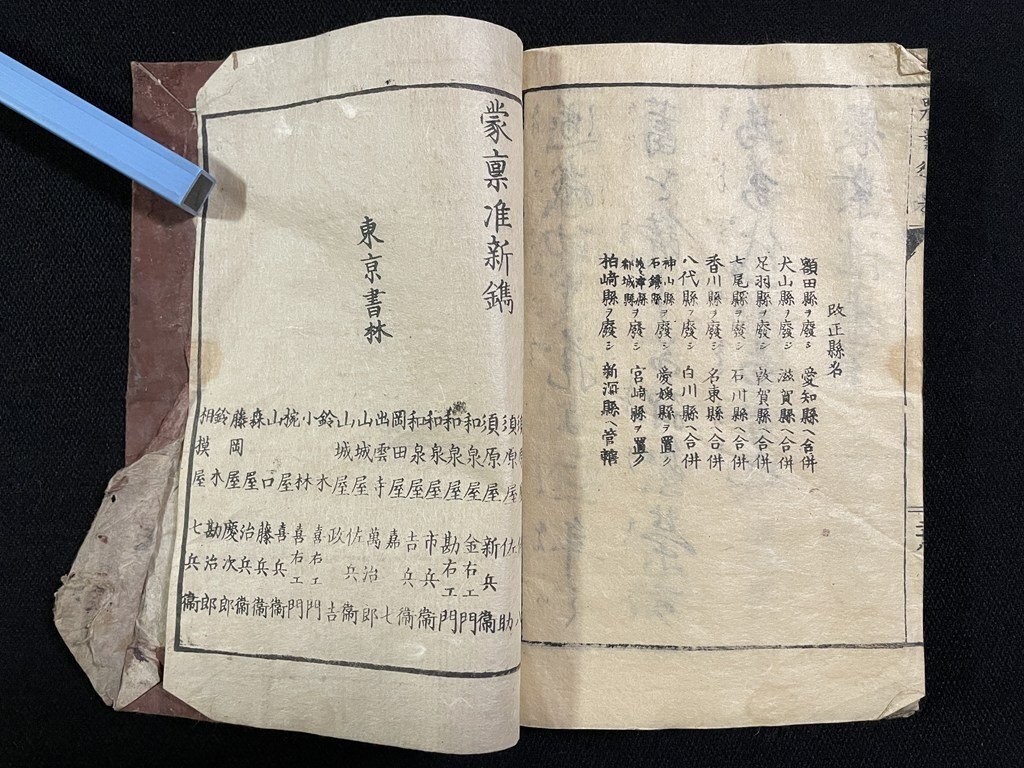 改正縣名
額田縣ヲ廢シ 愛知縣ヘ合併
犬山縣ヲ廢シ 滋賀縣ヘ合併
足羽縣ヲ廢シ 敦賀縣ヘ合併
七尾縣ヲ廢シ 石川縣ヘ合併
香川縣ヲ廢シ 名東縣ヘ合併
八代縣ヲ廢シ 白川縣ヘ合併
神山縣 石鐵縣 ヲ廢シ 愛媛縣ヲ置ク
美々津縣 都城縣 ヲ廢シ 宮崎縣ヲ置ク
柏崎縣ヲ廢シ 新潟縣ヘ管轄
蒙禀准新鐫
東京書林
須原屋 佐助
須原屋 新兵衞
和泉屋 金右工門
和泉屋 勘右工門
和泉屋 市兵衞
和泉屋 吉兵衞
岡田屋 嘉七
出雲寺 萬治郎
山城屋 佐兵衞
山城屋 政吉
鈴木 喜右工門
小林 喜右工門
椀屋 喜兵衞
山口屋 藤兵衞
森屋 治兵衞
藤岡屋 慶次郎
鈴木 勘治郎
相摸屋 七兵衞